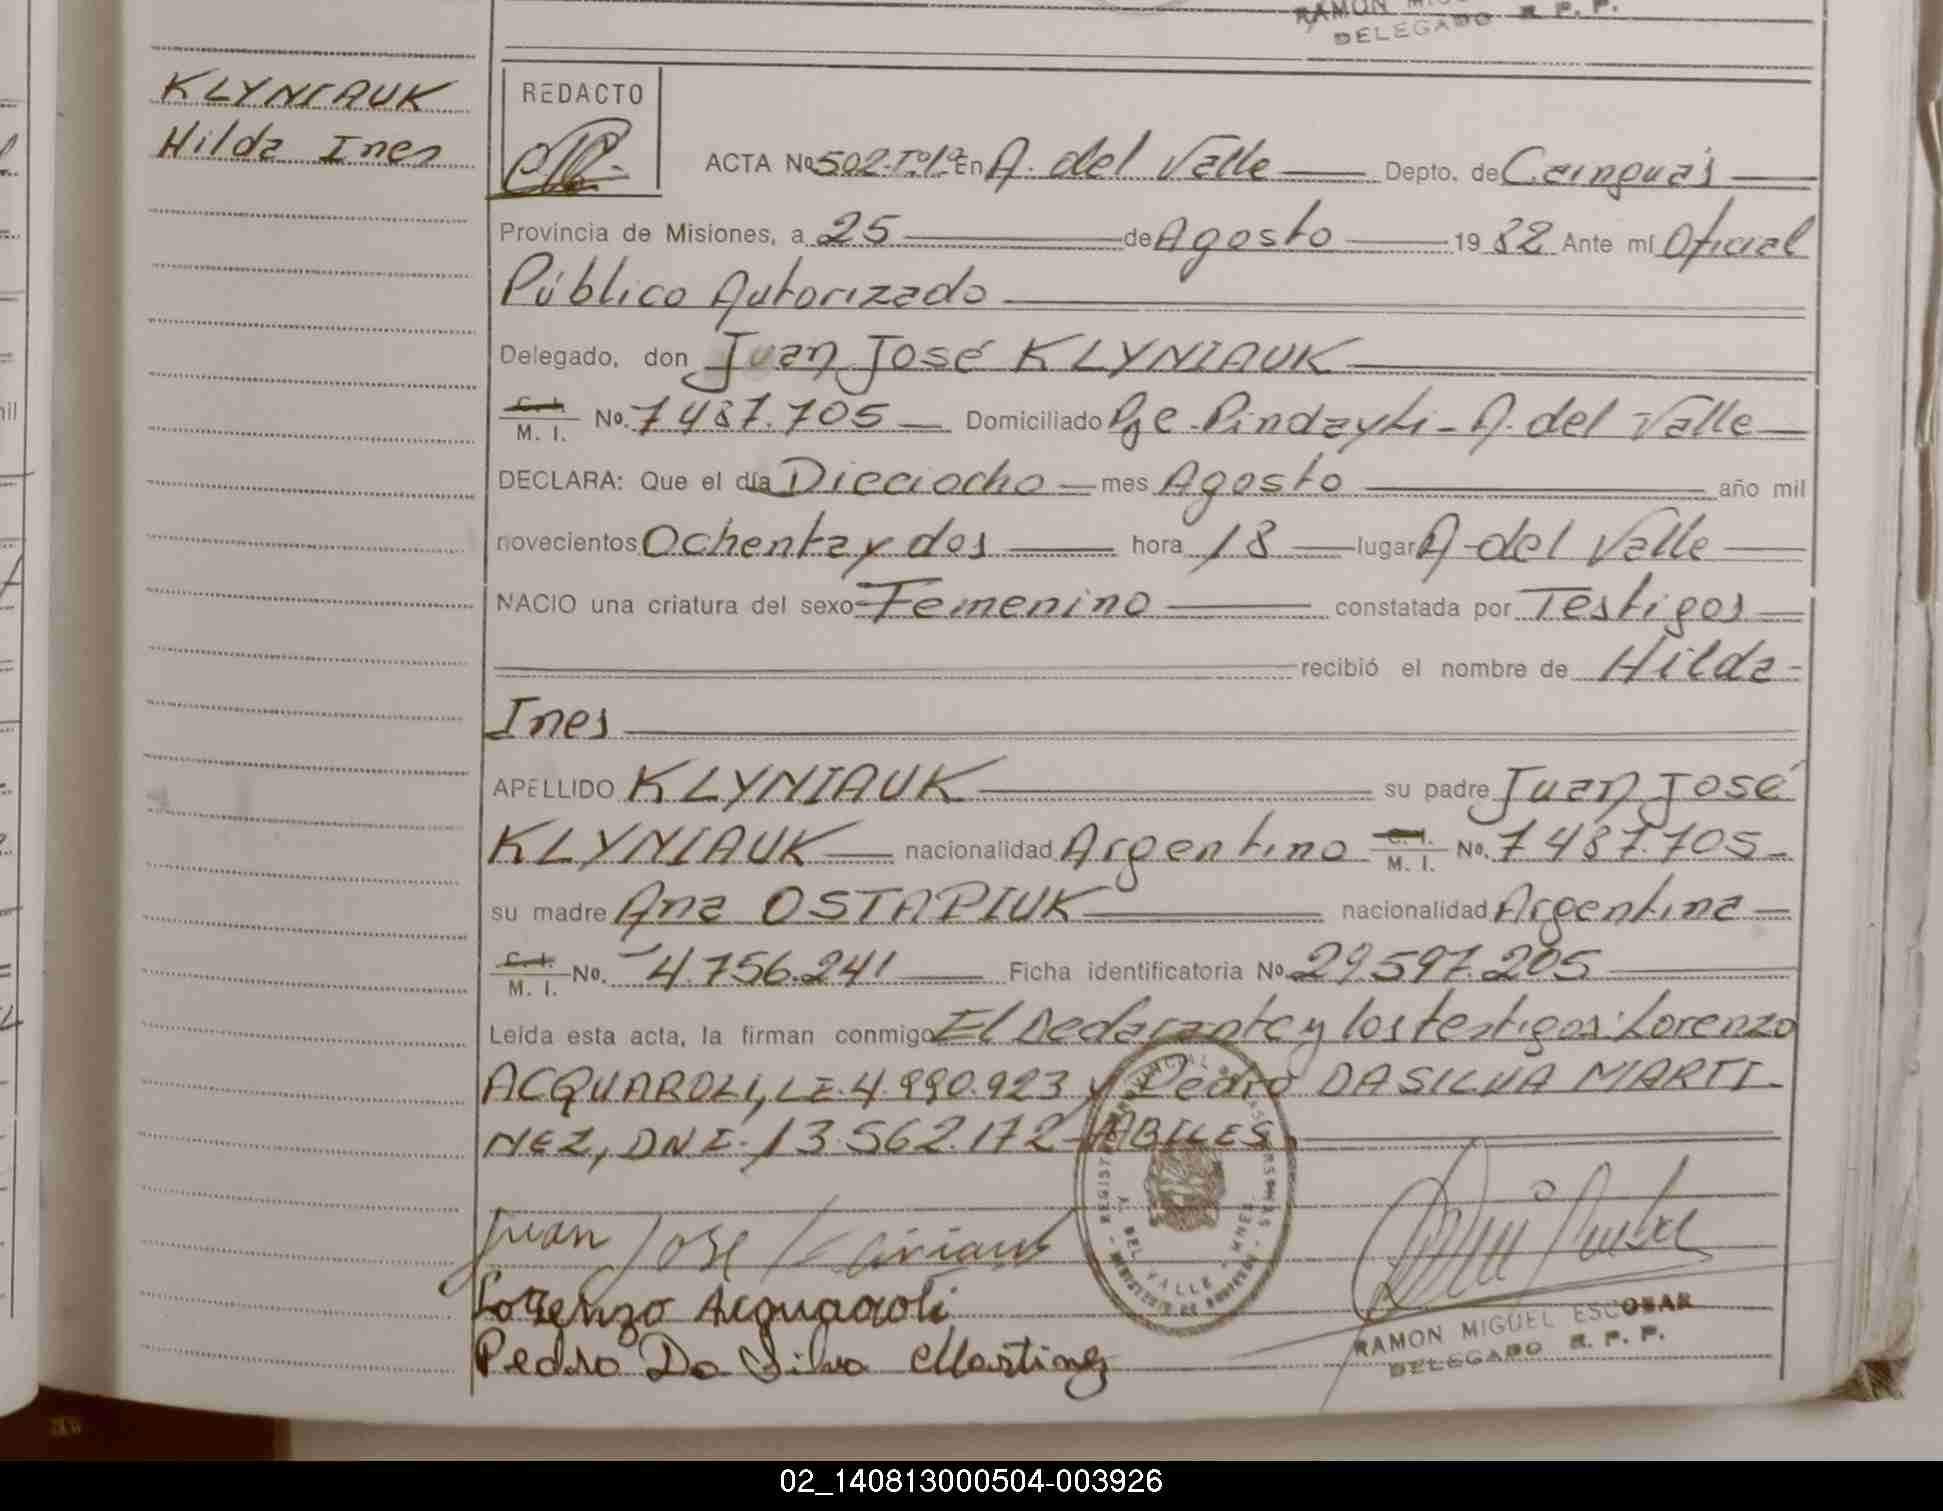 RAMON MIG
DELEGADO R. P. P.
KLYNIAUK
Hilda Ines
REDACTO
ACTA No 502-Tº1º En A. del Valle Depto. de Cainguás
Provincia de Misiones, a 25 de Agosto 1982 Ante mí Oficial
Público Autorizado
Delegado, don Juan José KLYNIAUK
C. I. M. I. No. 7487.705 Domiciliado Pje Pindayti - A. del Valle
DECLARA: Que el día Dieciocho mes Agosto año mil
novecientos Ochenta y dos hora 18 lugar A. del Valle
NACIO una criatura del sexo Femenino constatada por Testigos
recibió el nombre de Hilda
Ines
APELLIDO KLYNIAUK su padre Juan José
KLYNIAUK nacionalidad Argentino C. I. M. I. No. 7487.705
su madre Ana OSTAPIUK nacionalidad Argentina
C. I. M. I. No. 4.756.241 Ficha identificatoria No 29.597.205
Leída esta acta, la firman conmigo El Declarante y los testigos: Lorenzo
ACQUAROLI, LE. 4.990.923 y Pedro DA SILVA MARTI
NEZ, DNI. 13.562.172 HABILES
Juan José
Lorenzo Acquaroli
Pedro Da Silva Martinez
RAMON MIGUEL ESCOBAR
DELEGADO R. P. P.
02_140813000504-003926